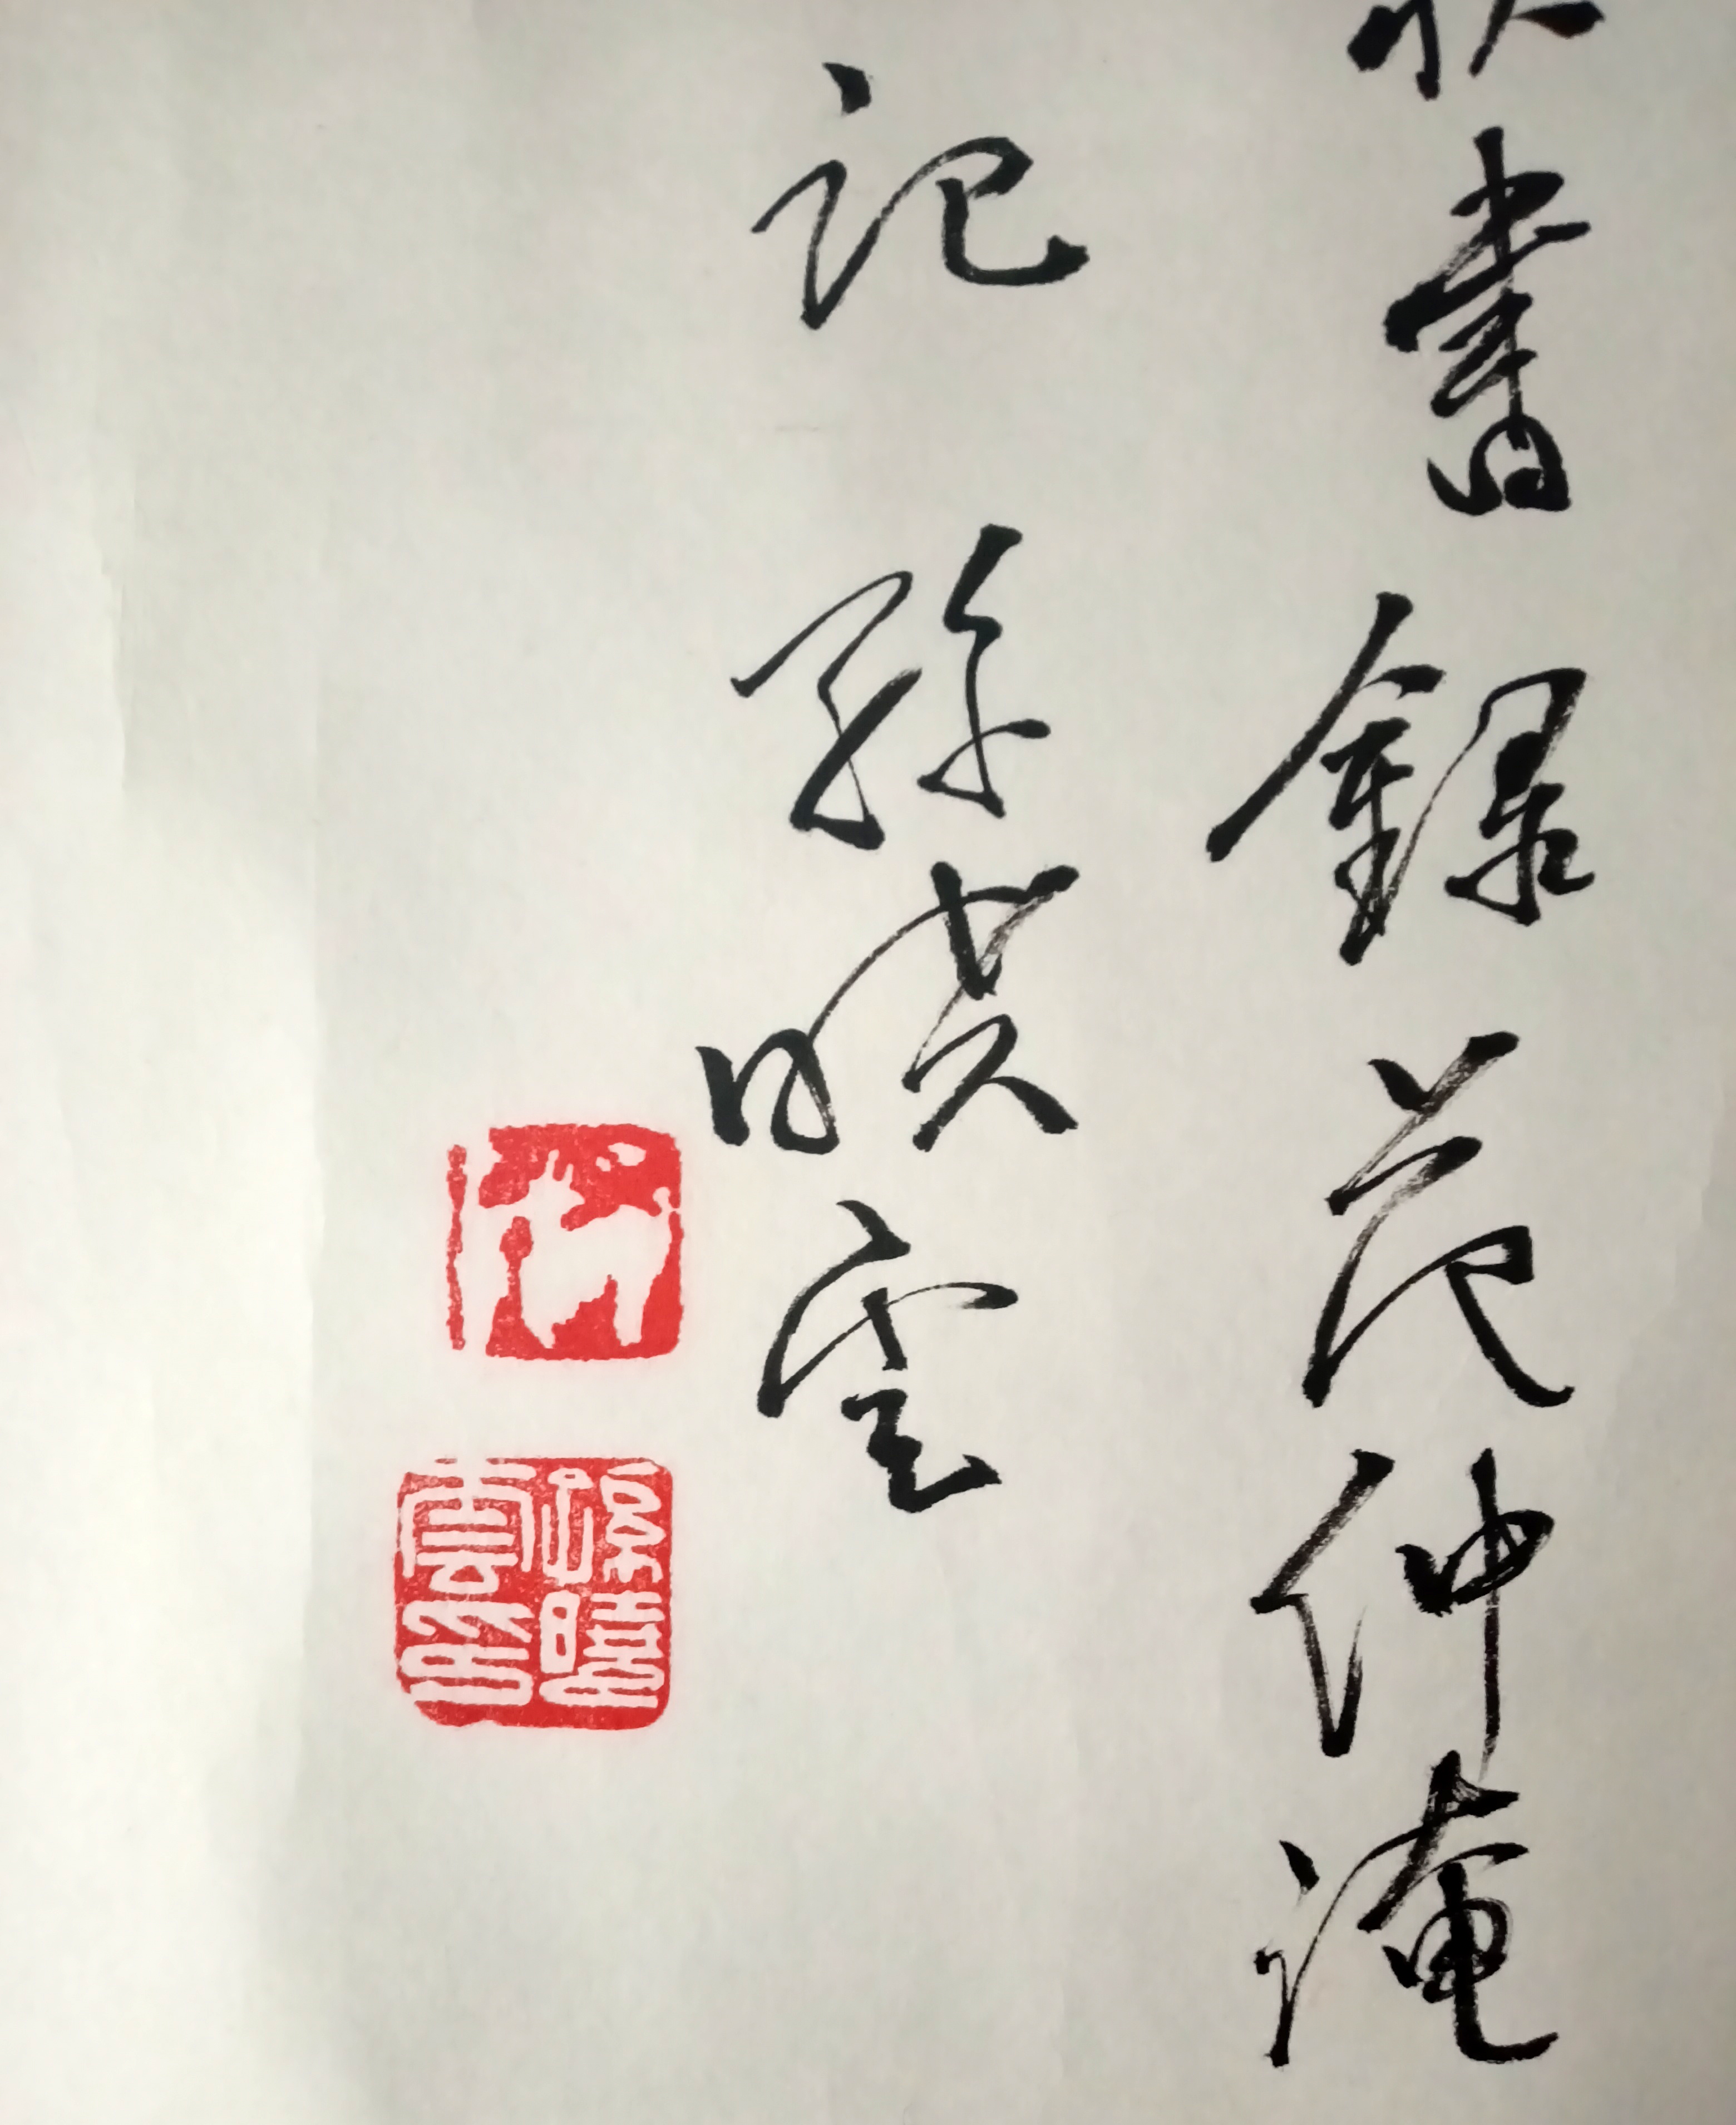 書錄范仲淹
記 孫曉雲
孫曉雲印